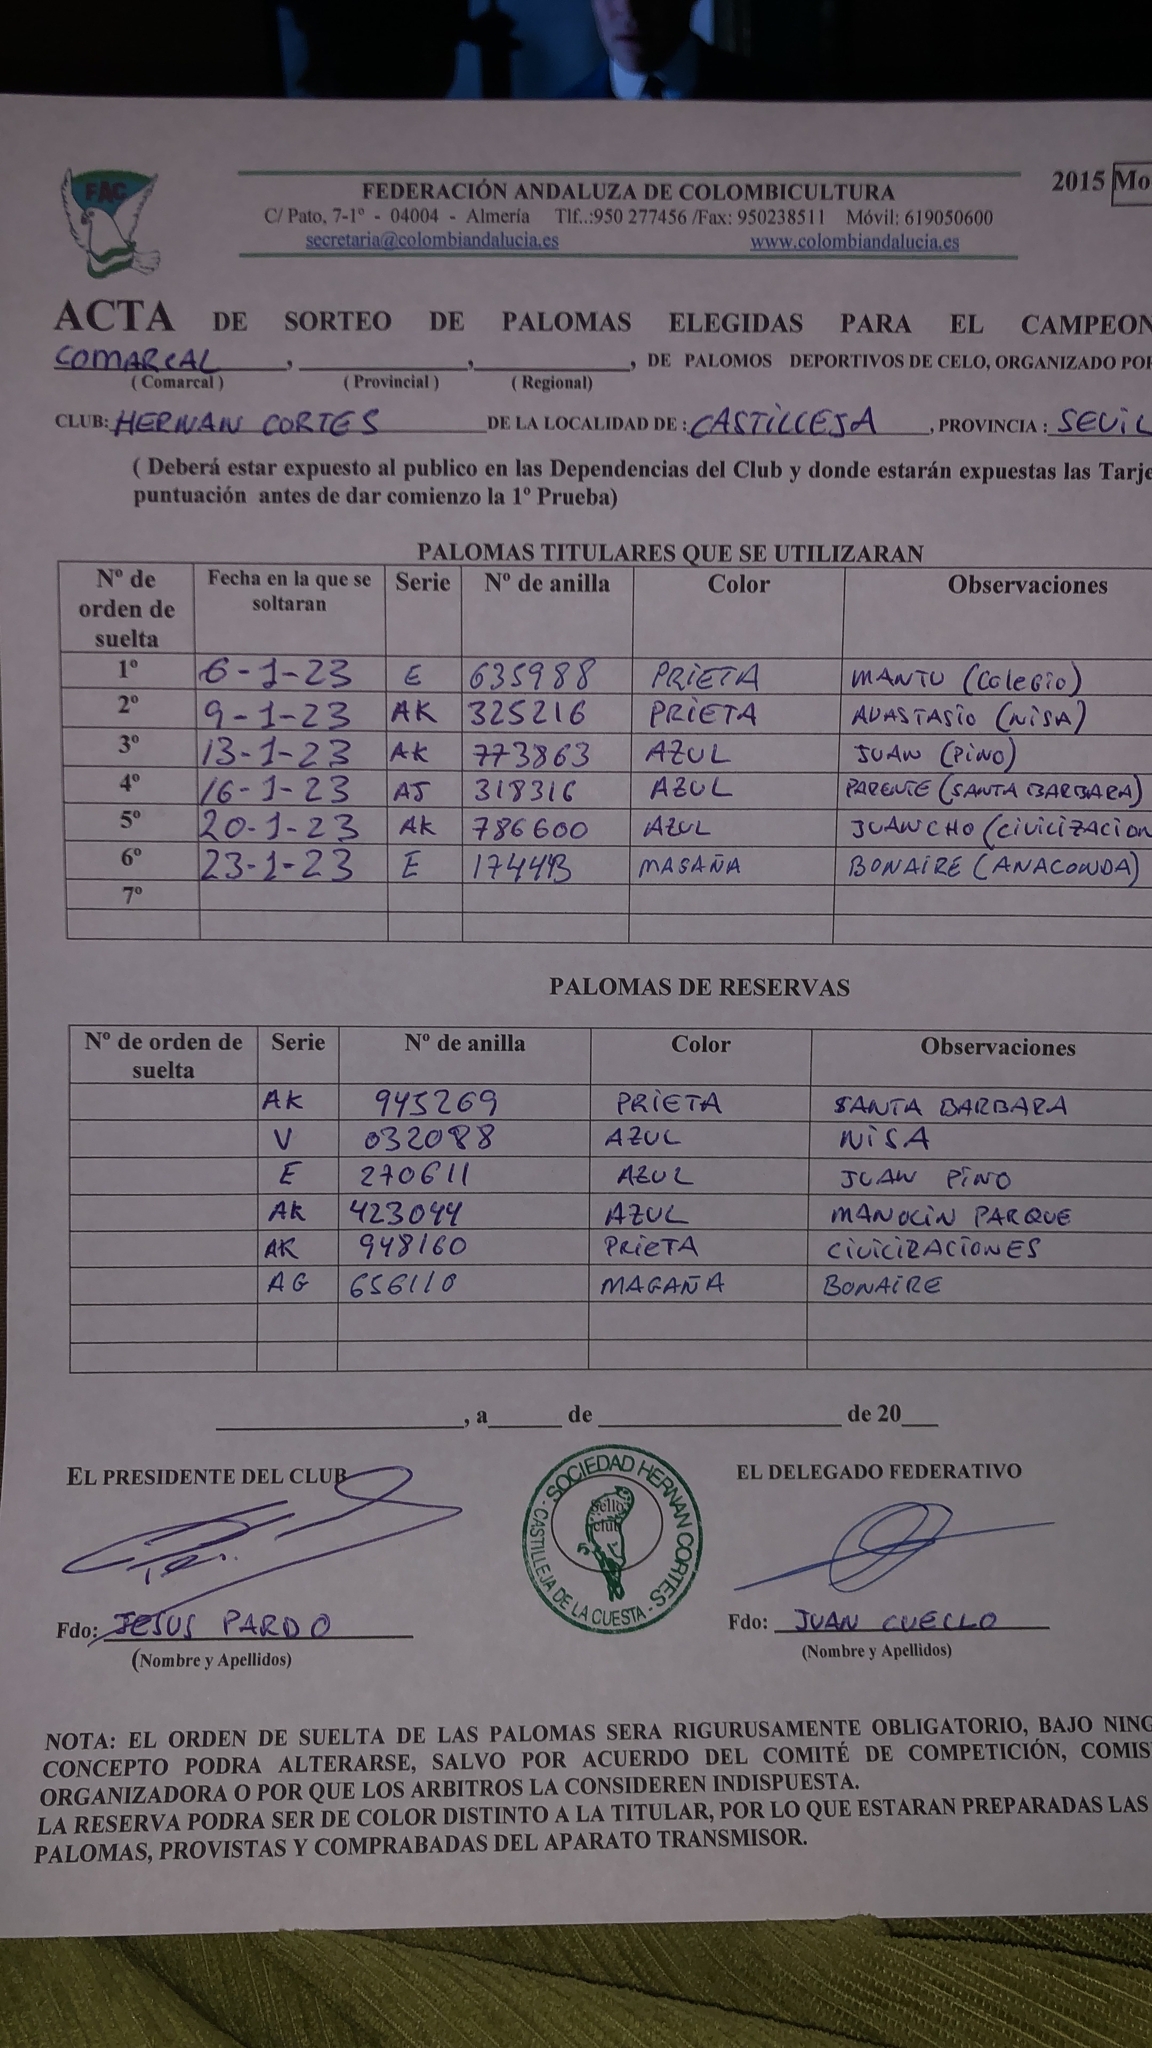 FAC
FEDERACIÓN ANDALUZA DE COLOMBICULTURA
2015 Mo
C/ Pato, 7-1º - 04004 - Almería Tlf..:950 277456 /Fax: 950238511 Móvil: 619050600
secretaria@colombiandalucia.es www.colombiandalucia.es
ACTA DE SORTEO DE PALOMAS ELEGIDAS PARA EL CAMPEON
COMARCAL, , , DE PALOMOS DEPORTIVOS DE CELO, ORGANIZADO POR
( Comarcal ) ( Provincial ) ( Regional)
CLUB: HERNAN CORTES DE LA LOCALIDAD DE : CASTILLEJA , PROVINCIA : SEVIL
( Deberá estar expuesto al publico en las Dependencias del Club y donde estarán expuestas las Tarje
puntuación antes de dar comienzo la 1º Prueba)
PALOMAS TITULARES QUE SE UTILIZARAN
Nº de orden de suelta Fecha en la que se soltaran Serie Nº de anilla Color Observaciones
1º 6-1-23 E 635988 PRIETA MANTU (COLEGIO)
2º 9-1-23 AK 325216 PRIETA (NISA)
3º 13-1-23 AK 773863 AZUL JUAN (PINO)
4º 16-1-23 AJ 318316 AZUL (SANTA BARBARA)
5º 20-1-23 AK 786600 AZUL JUANCHO (CIVILIZACION
6º 23-1-23 E MAGAÑA BONAIRE (ANACONDA)
7º
PALOMAS DE RESERVAS
Nº de orden de suelta Serie Nº de anilla Color Observaciones
AK 945269 PRIETA SANTA BARBARA
V 032088 AZUL NISA
E 270611 AZUL JUAN PINO
AK 423044 AZUL MANOLIN PARQUE
AK 948160 PRIETA CIVICIRACIONES
AG 656110 MAGAÑA BONAIRE
, a de de 20
EL PRESIDENTE DEL CLUB
EL DELEGADO FEDERATIVO
SOCIEDAD HERNAN CORTES
- CASTILLEJA DE LA CUESTA -
Sello
club
Fdo: JESUS PARDO
Fdo: JUAN CUELLO
(Nombre y Apellidos)
(Nombre y Apellidos)
NOTA: EL ORDEN DE SUELTA DE LAS PALOMAS SERA RIGURUSAMENTE OBLIGATORIO, BAJO NING
CONCEPTO PODRA ALTERARSE, SALVO POR ACUERDO DEL COMITÉ DE COMPETICIÓN, COMIS
ORGANIZADORA O POR QUE LOS ARBITROS LA CONSIDEREN INDISPUESTA.
LA RESERVA PODRA SER DE COLOR DISTINTO A LA TITULAR, POR LO QUE ESTARAN PREPARADAS LAS
PALOMAS, PROVISTAS Y COMPRABADAS DEL APARATO TRANSMISOR.